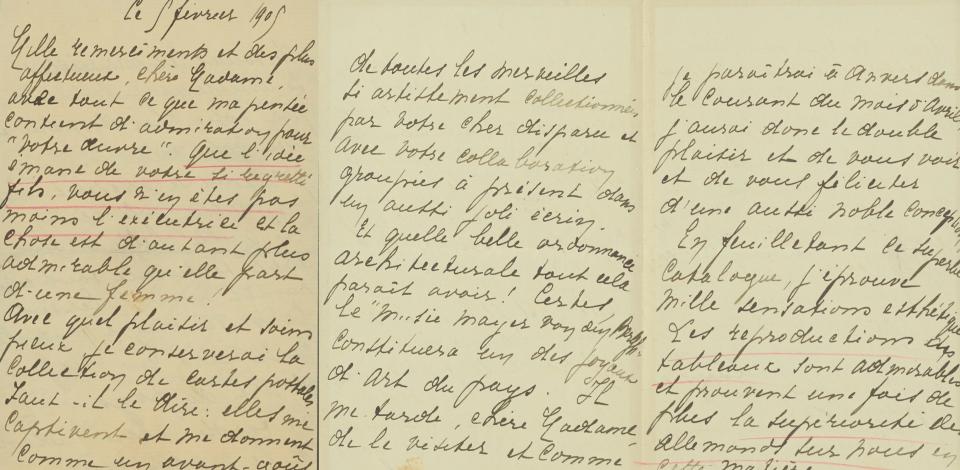 Le 5 février 1905
Mille remerciments et des plus
affectueux, chère Madame,
avec tout ce que ma pensée
contient d'admiration pour
"votre œuvre". Que l'idée
émane de votre si regretté
fils, vous n'en êtes pas
moins l'exécutrice et la
chose est d'autant plus
admirable qu'elle part
d'une femme!
Avec quel plaisir et soins
pieux je conserverai la
collection de cartes postales
Faut-il le dire: elles me
captivent et me donnent
comme un avant-goût
de toutes les merveilles
si artistement collectionnées
par votre cher disparu et
avec votre collaboration
groupées à présent dans
un aussi joli écrin.
Et quelle belle ordonnance
architecturale tout cela
paraît avoir! Certes
le "Musée Mayer van den Bergh"
constituera un des joyaux
d'art du pays. Il
me tarde, chère Madame,
de le visiter et comme
je paraîtrai à Anvers dans
le courant du mois d'Avril
j'aurai donc le double
plaisir et de vous voir
et de vous féliciter
d'une aussi noble conception
En feuilletant ce superbe
catalogue, j'éprouve
mille sensations esthétiques
Les reproductions des
tableaux sont admirables
et prouvent une fois de
plus la supériorité des
allemands sur nous en
cette matière